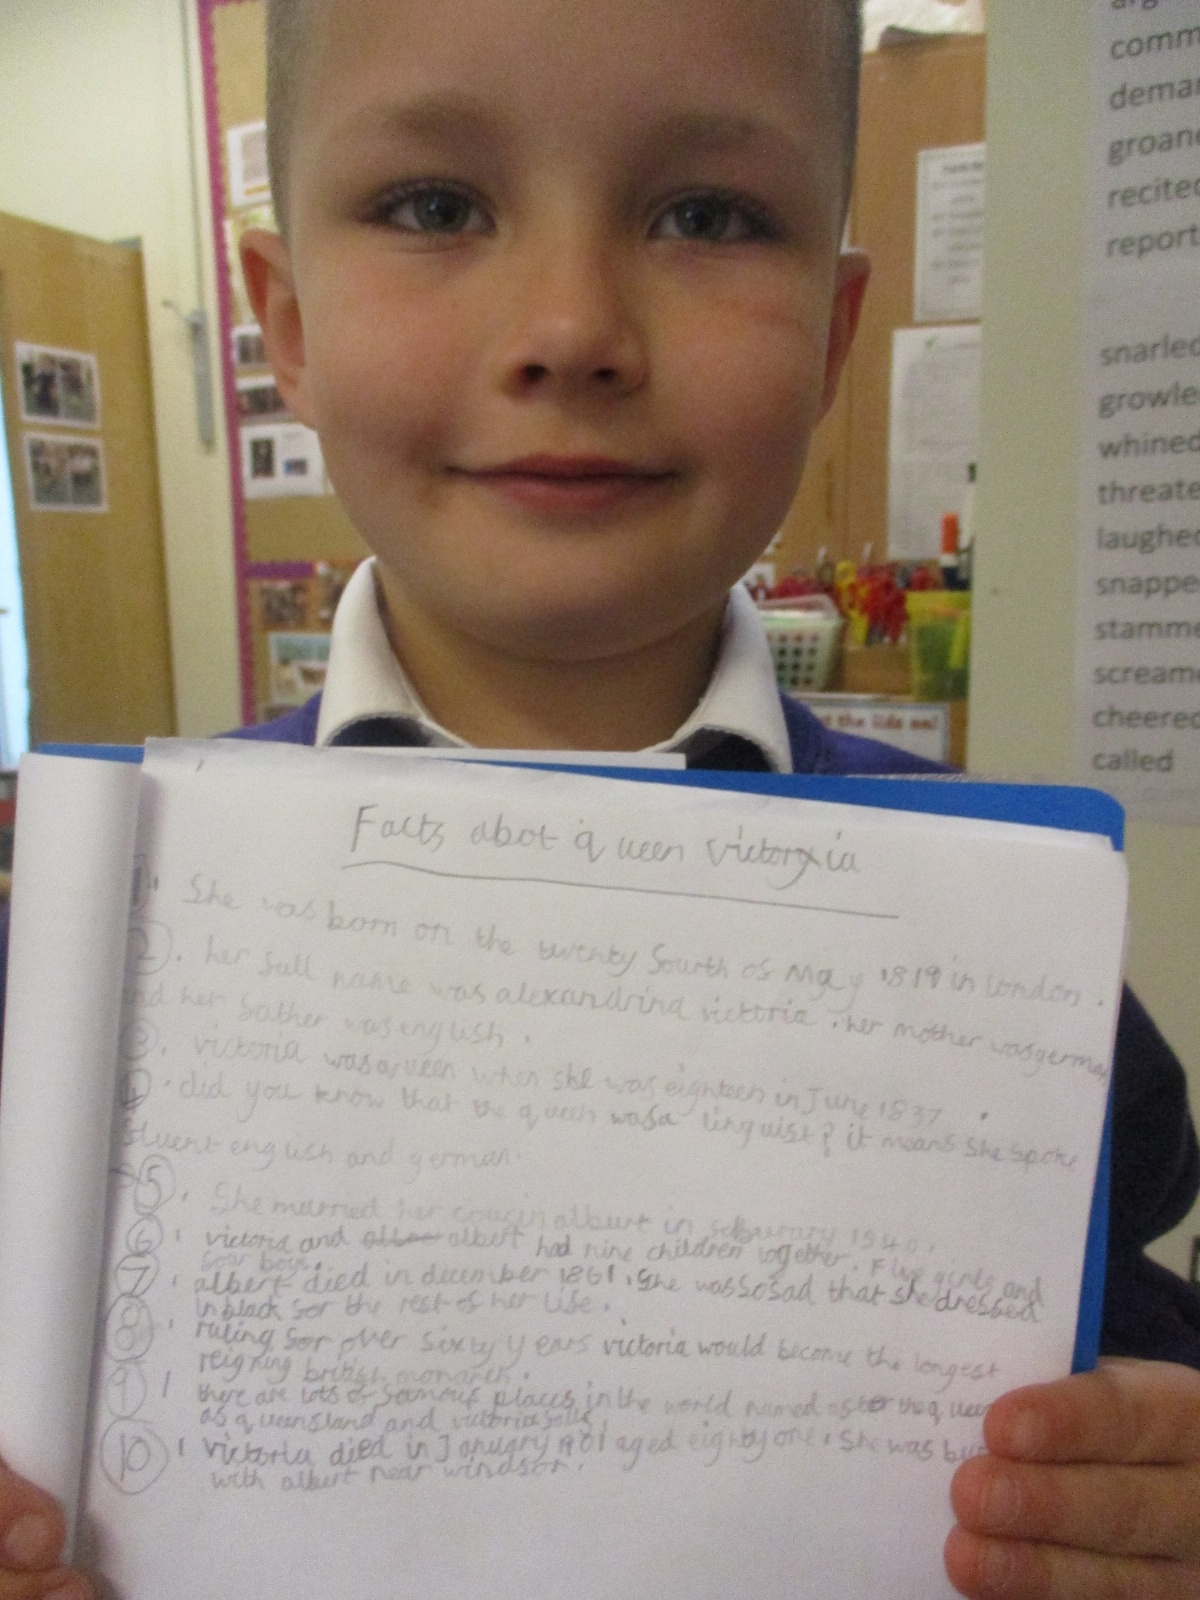 comm
dema
groan
recited
report
snarled
growle
whined
threate
laughed
snappe
stamme
scream
cheered
called
t the lids on!
Facts abot queen victoria
1. She was born on the twenty fourth of May 1819 in london.
2. her full name was alexandrina victoria. her mother was german
and her father was english.
3. victoria was queen when she was eighteen in June 1837.
4. did you know that the queen was a linguist? it means she spoke
fluent english and german.
5. She married her cousin alburt in 1940.
6. victoria and albert had nine children together. Five girls and
four boys.
7. albert died in december 1861. She was so sad that she dressed
in black for the rest of her life.
8. ruling for over sixty years victoria would become the longest
reigning british monarch.
9. there are lots of famous places in the world named after the queen
as queensland and victoria falls.
10. victoria died in January 1901 aged eighty one. She was bu
with albert near windsor.